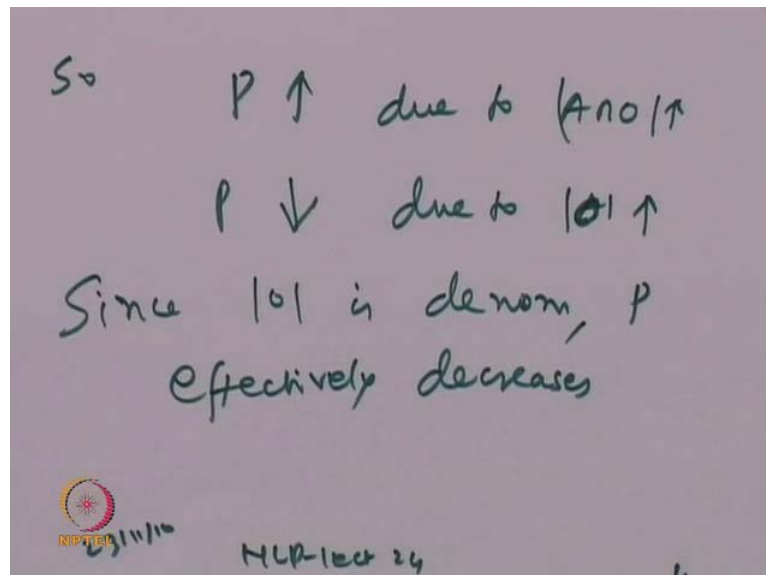 So P ↑ due to |A∩O|↑
P ↓ due to |O| ↑
Since |O| is denom, P
effectively decreases
NPTEL
23/11/10 NLP-lect 24